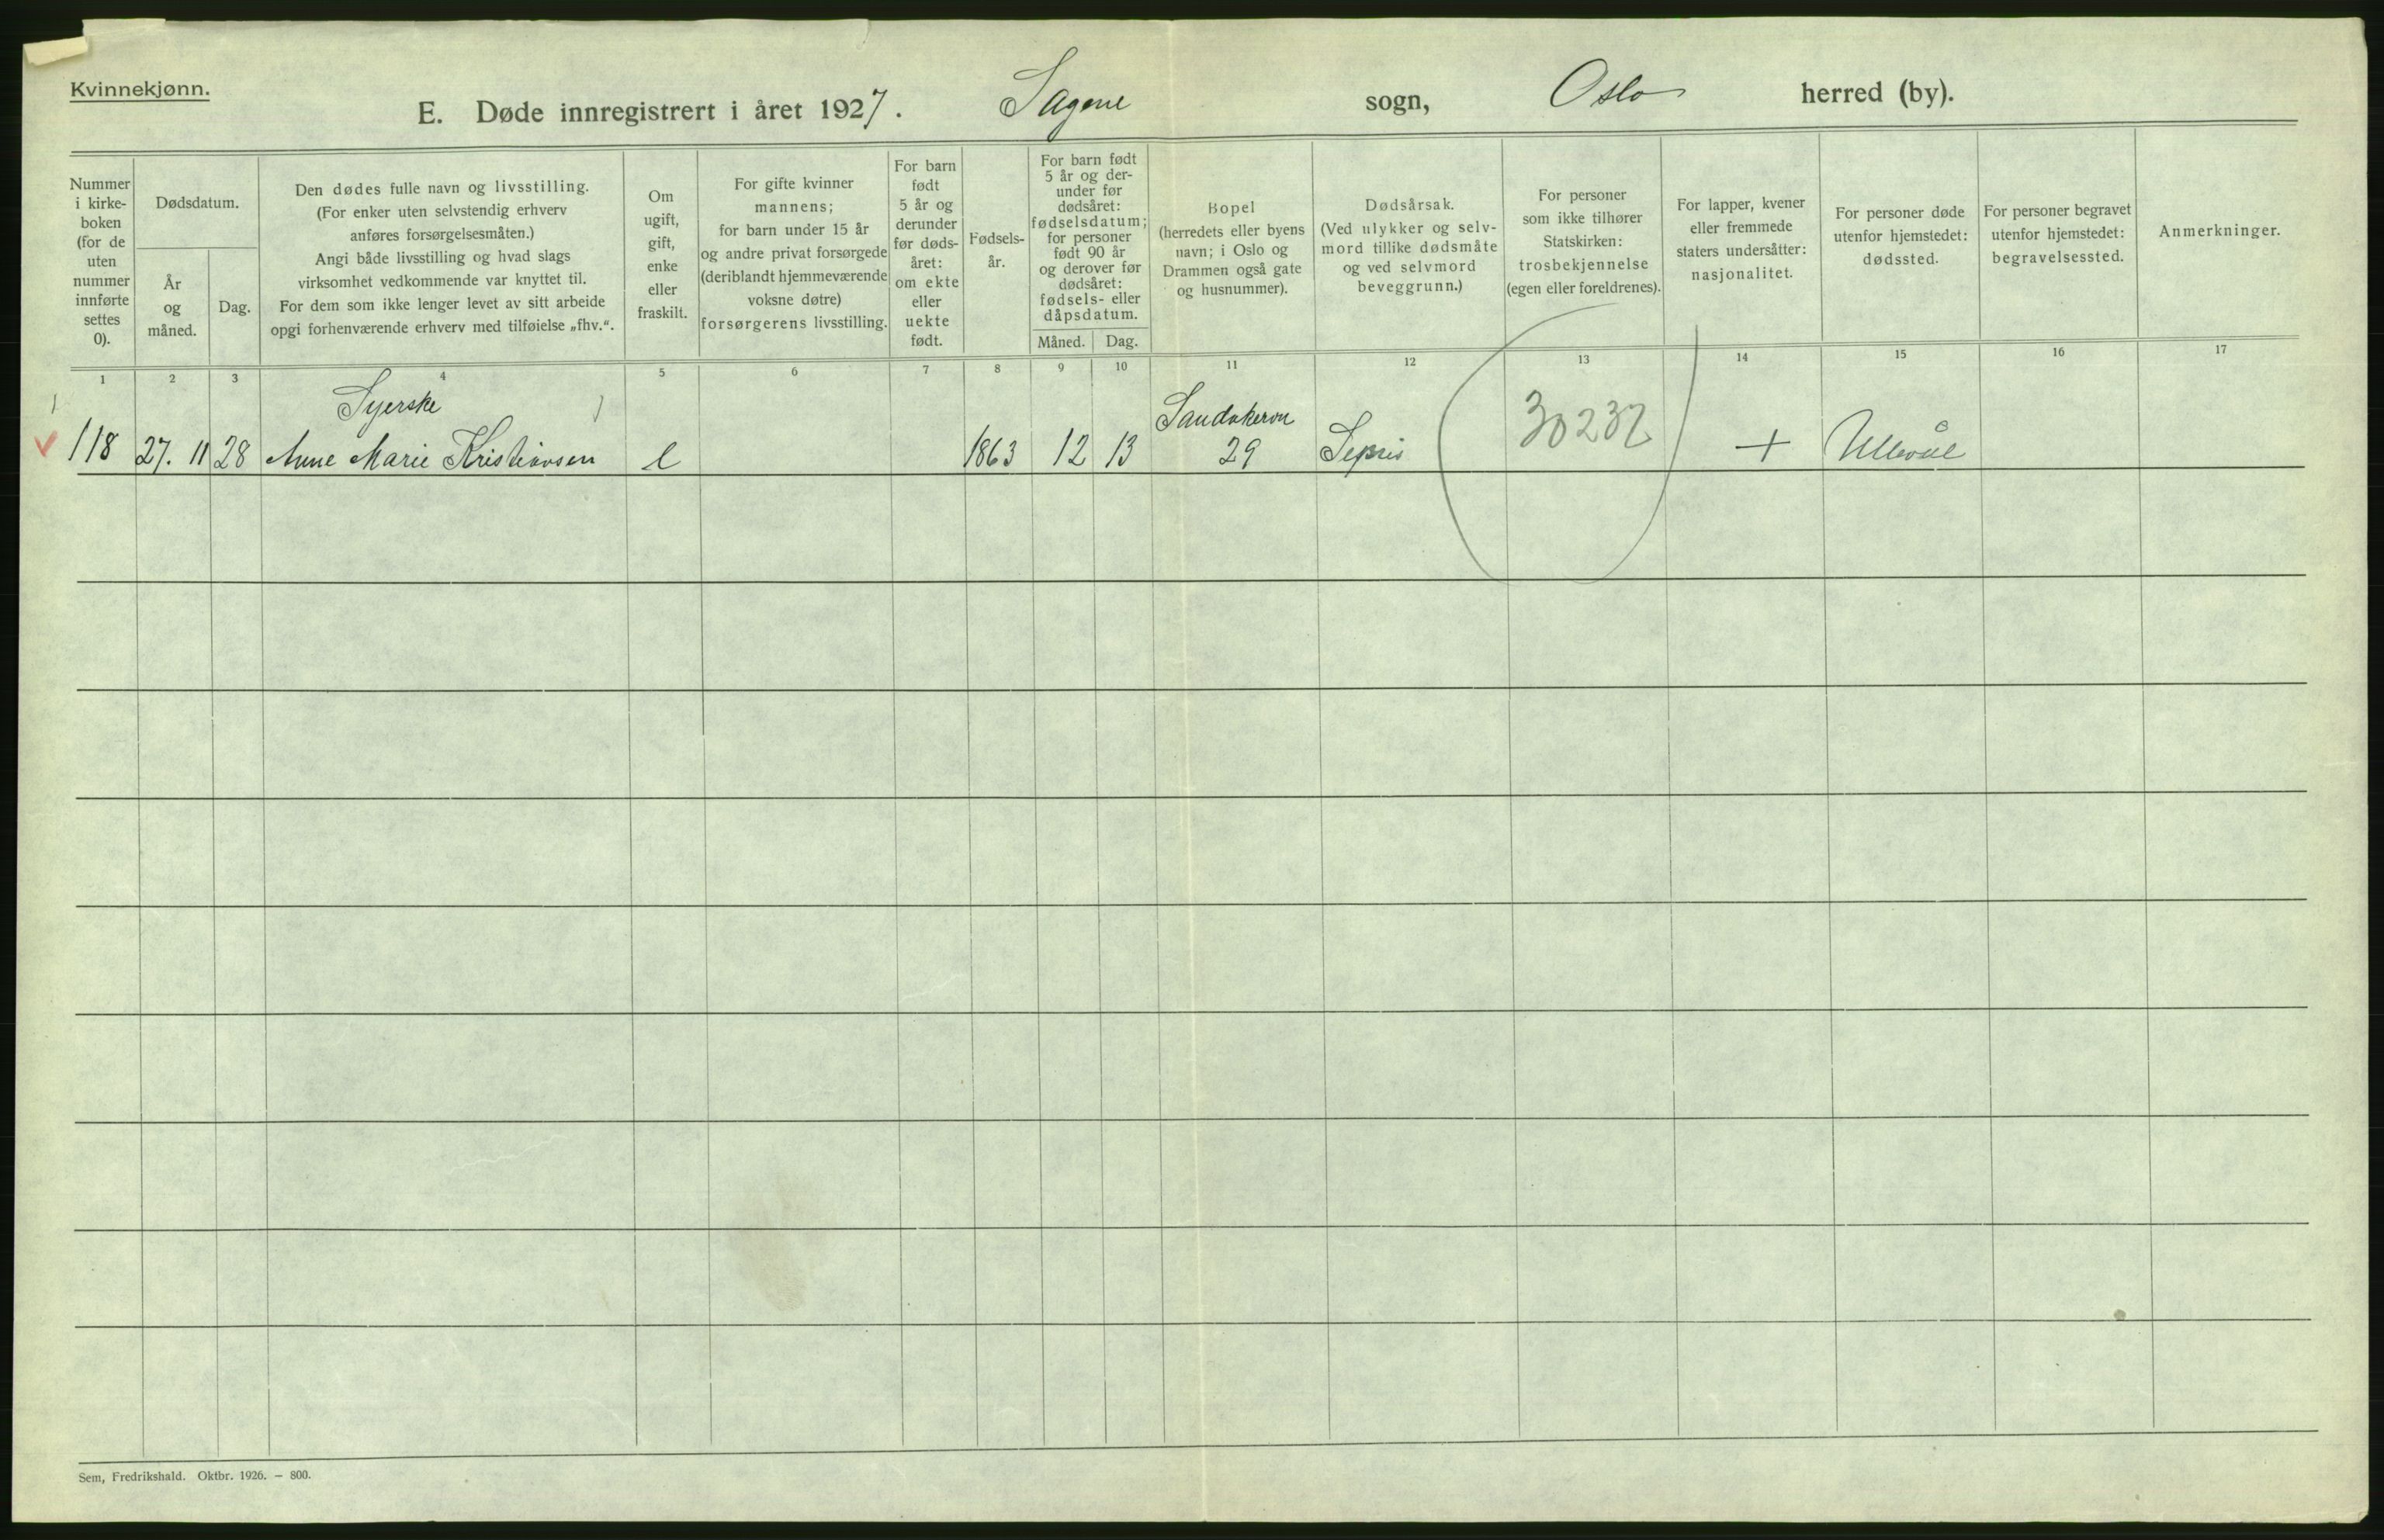 Kvinnekjønn.
E. Døde innregistrert i året 1927. Sagene sogn, Oslo herred (by).
Nummer
i kirke-
boken
(for de
uten
nummer
innførte
settes
0).
Dødsdatum.
År
og
måned.
Dag.
Den dødes fulle navn og livsstilling.
(For enker uten selvstendig erhverv
anføres forsørgelsesmåten.)
Angi både livsstilling og hvad slags
virksomhet vedkommende var knyttet til.
For dem som ikke lenger levet av sitt arbeide
opgi forhenværende erhverv med tilføielse „fhv.“.
Om
ugift,
gift,
enke
eller
fraskilt.
For gifte kvinner
mannens;
for barn under 15 år
og andre privat forsørgede
(deriblandt hjemmeværende
voksne døtre)
forsørgerens livsstilling.
For barn
født
5 år og
derunder
før døds-
året:
om ekte
eller
uekte
født.
Fødsels-
år.
For barn født
5 år og der-
under før
dødsåret:
fødselsdatum;
for personer
født 90 år
og derover før
dødsåret:
fødsels- eller
dåpsdatum.
Måned. Dag.
Bopel
(herredets eller byens
navn; i Oslo og
Drammen også gate
og husnummer).
Dødsårsak.
(Ved ulykker og selv-
mord tillike dødsmåte
og ved selvmord
beveggrunn.)
For personer
som ikke tilhører
Statskirken:
trosbekjennelse
(egen eller foreldrenes).
For lapper, kvener
eller fremmede
staters undersåtter:
nasjonalitet.
For personer døde
utenfor hjemstedet:
dødssted.
For personer begravet
utenfor hjemstedet:
begravelsessted.
Anmerkninger.
1 2 3 4 5 6 7 8 9 10 11 12 13 14 15 16 17
Syerske
118 27. 11 28 Anne Marie Kristiansen e 1863 12 13 29 Sepsis 30232 + Ullevål
Sem, Fredrikshald. Oktbr. 1926. – 800.